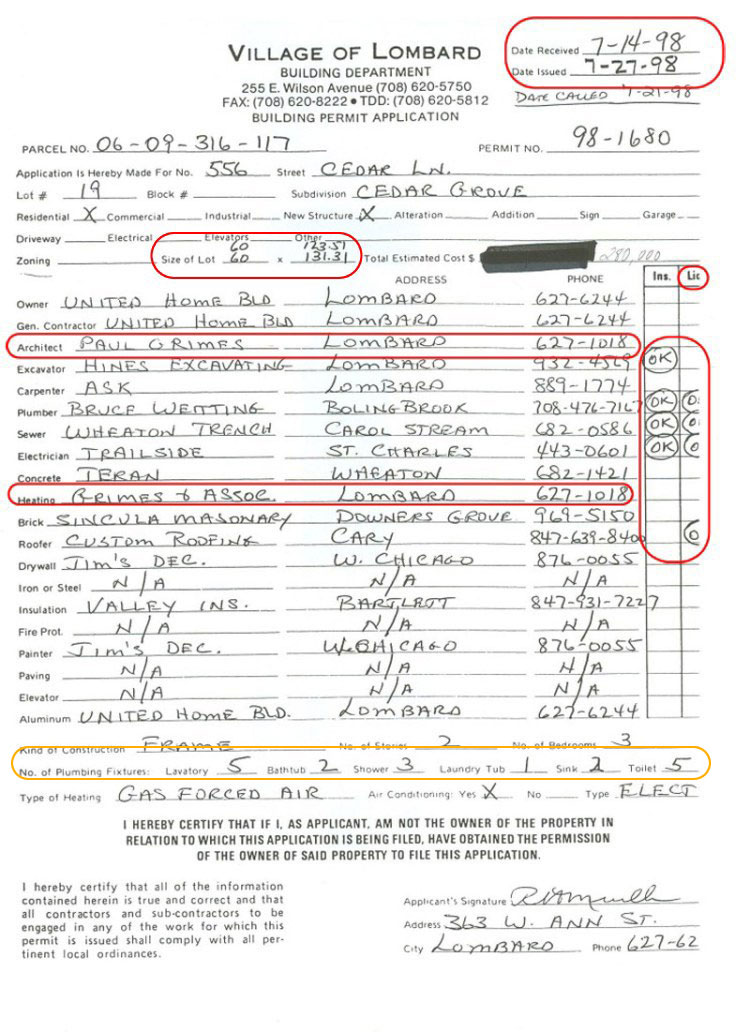 VILLAGE OF LOMBARD
BUILDING DEPARTMENT
255 E. Wilson Avenue (708) 620-5750
FAX: (708) 620-8222 • TDD: (708) 620-5812
BUILDING PERMIT APPLICATION
Date Received 7-14-98
Date Issued 7-27-98
DATE CALLED 7-21-98
PARCEL NO. 06-09-316-117 PERMIT NO. 98-1680
Application Is Hereby Made For No. 556 Street CEDAR LN.
Lot # 19 Block # Subdivision CEDAR GROVE
Residential X Commercial Industrial New Structure X Alteration Addition Sign Garage
Driveway Electrical Elevators Other
60 123.51
Zoning Size of Lot 60 x 131.31 Total Estimated Cost $ 280,000
ADDRESS PHONE Ins. Lic
Owner UNITED HOME BLD LOMBARD 627-6244
Gen. Contractor UNITED HOME BLD LOMBARD 627-6244
Architect PAUL GRIMES LOMBARD 627-1018
Excavator HINES EXCAVATING LOMBARD 932-4569 OK
Carpenter ASK LOMBARD 889-1774
Plumber BRUCE WETTING BOLINGBROOK 708-476-7167 OK
Sewer WHEATON TRENCH CAROL STREAM 682-0586 OK
Electrician TRAILSIDE ST. CHARLES 443-0601 OK
Concrete TERAN WHEATON 682-1421
Heating GRIMES & ASSOC. LOMBARD 627-1018
Brick SINCULA MASONARY DOWNERS GROVE 969-5150
Roofer CUSTOM ROOFING CARY 847-639-8400
Drywall JIM'S DEC. W. CHICAGO 876-0055
Iron or Steel N/A N/A N/A
Insulation VALLEY INS. BARTLETT 847-931-7227
Fire Prot. N/A N/A N/A
Painter JIM'S DEC. W. CHICAGO 876-0055
Paving N/A N/A N/A
Elevator N/A N/A N/A
Aluminum UNITED HOME BLD. LOMBARD 627-6244
Kind of Construction FRAME No. of Stories 2 No. of Bedrooms 3
No. of Plumbing Fixtures: Lavatory 5 Bathtub 2 Shower 3 Laundry Tub 1 Sink 2 Toilet 5
Type of Heating GAS FORCED AIR Air Conditioning: Yes X No Type ELECT
I HEREBY CERTIFY THAT IF I, AS APPLICANT, AM NOT THE OWNER OF THE PROPERTY IN
RELATION TO WHICH THIS APPLICATION IS BEING FILED, HAVE OBTAINED THE PERMISSION
OF THE OWNER OF SAID PROPERTY TO FILE THIS APPLICATION.
I hereby certify that all of the information
contained herein is true and correct and that
all contractors and sub-contractors to be
engaged in any of the work for which this
permit is issued shall comply with all per-
tinent local ordinances.
Applicant's Signature
Address 363 W. ANN ST.
City LOMBARD Phone 627-62